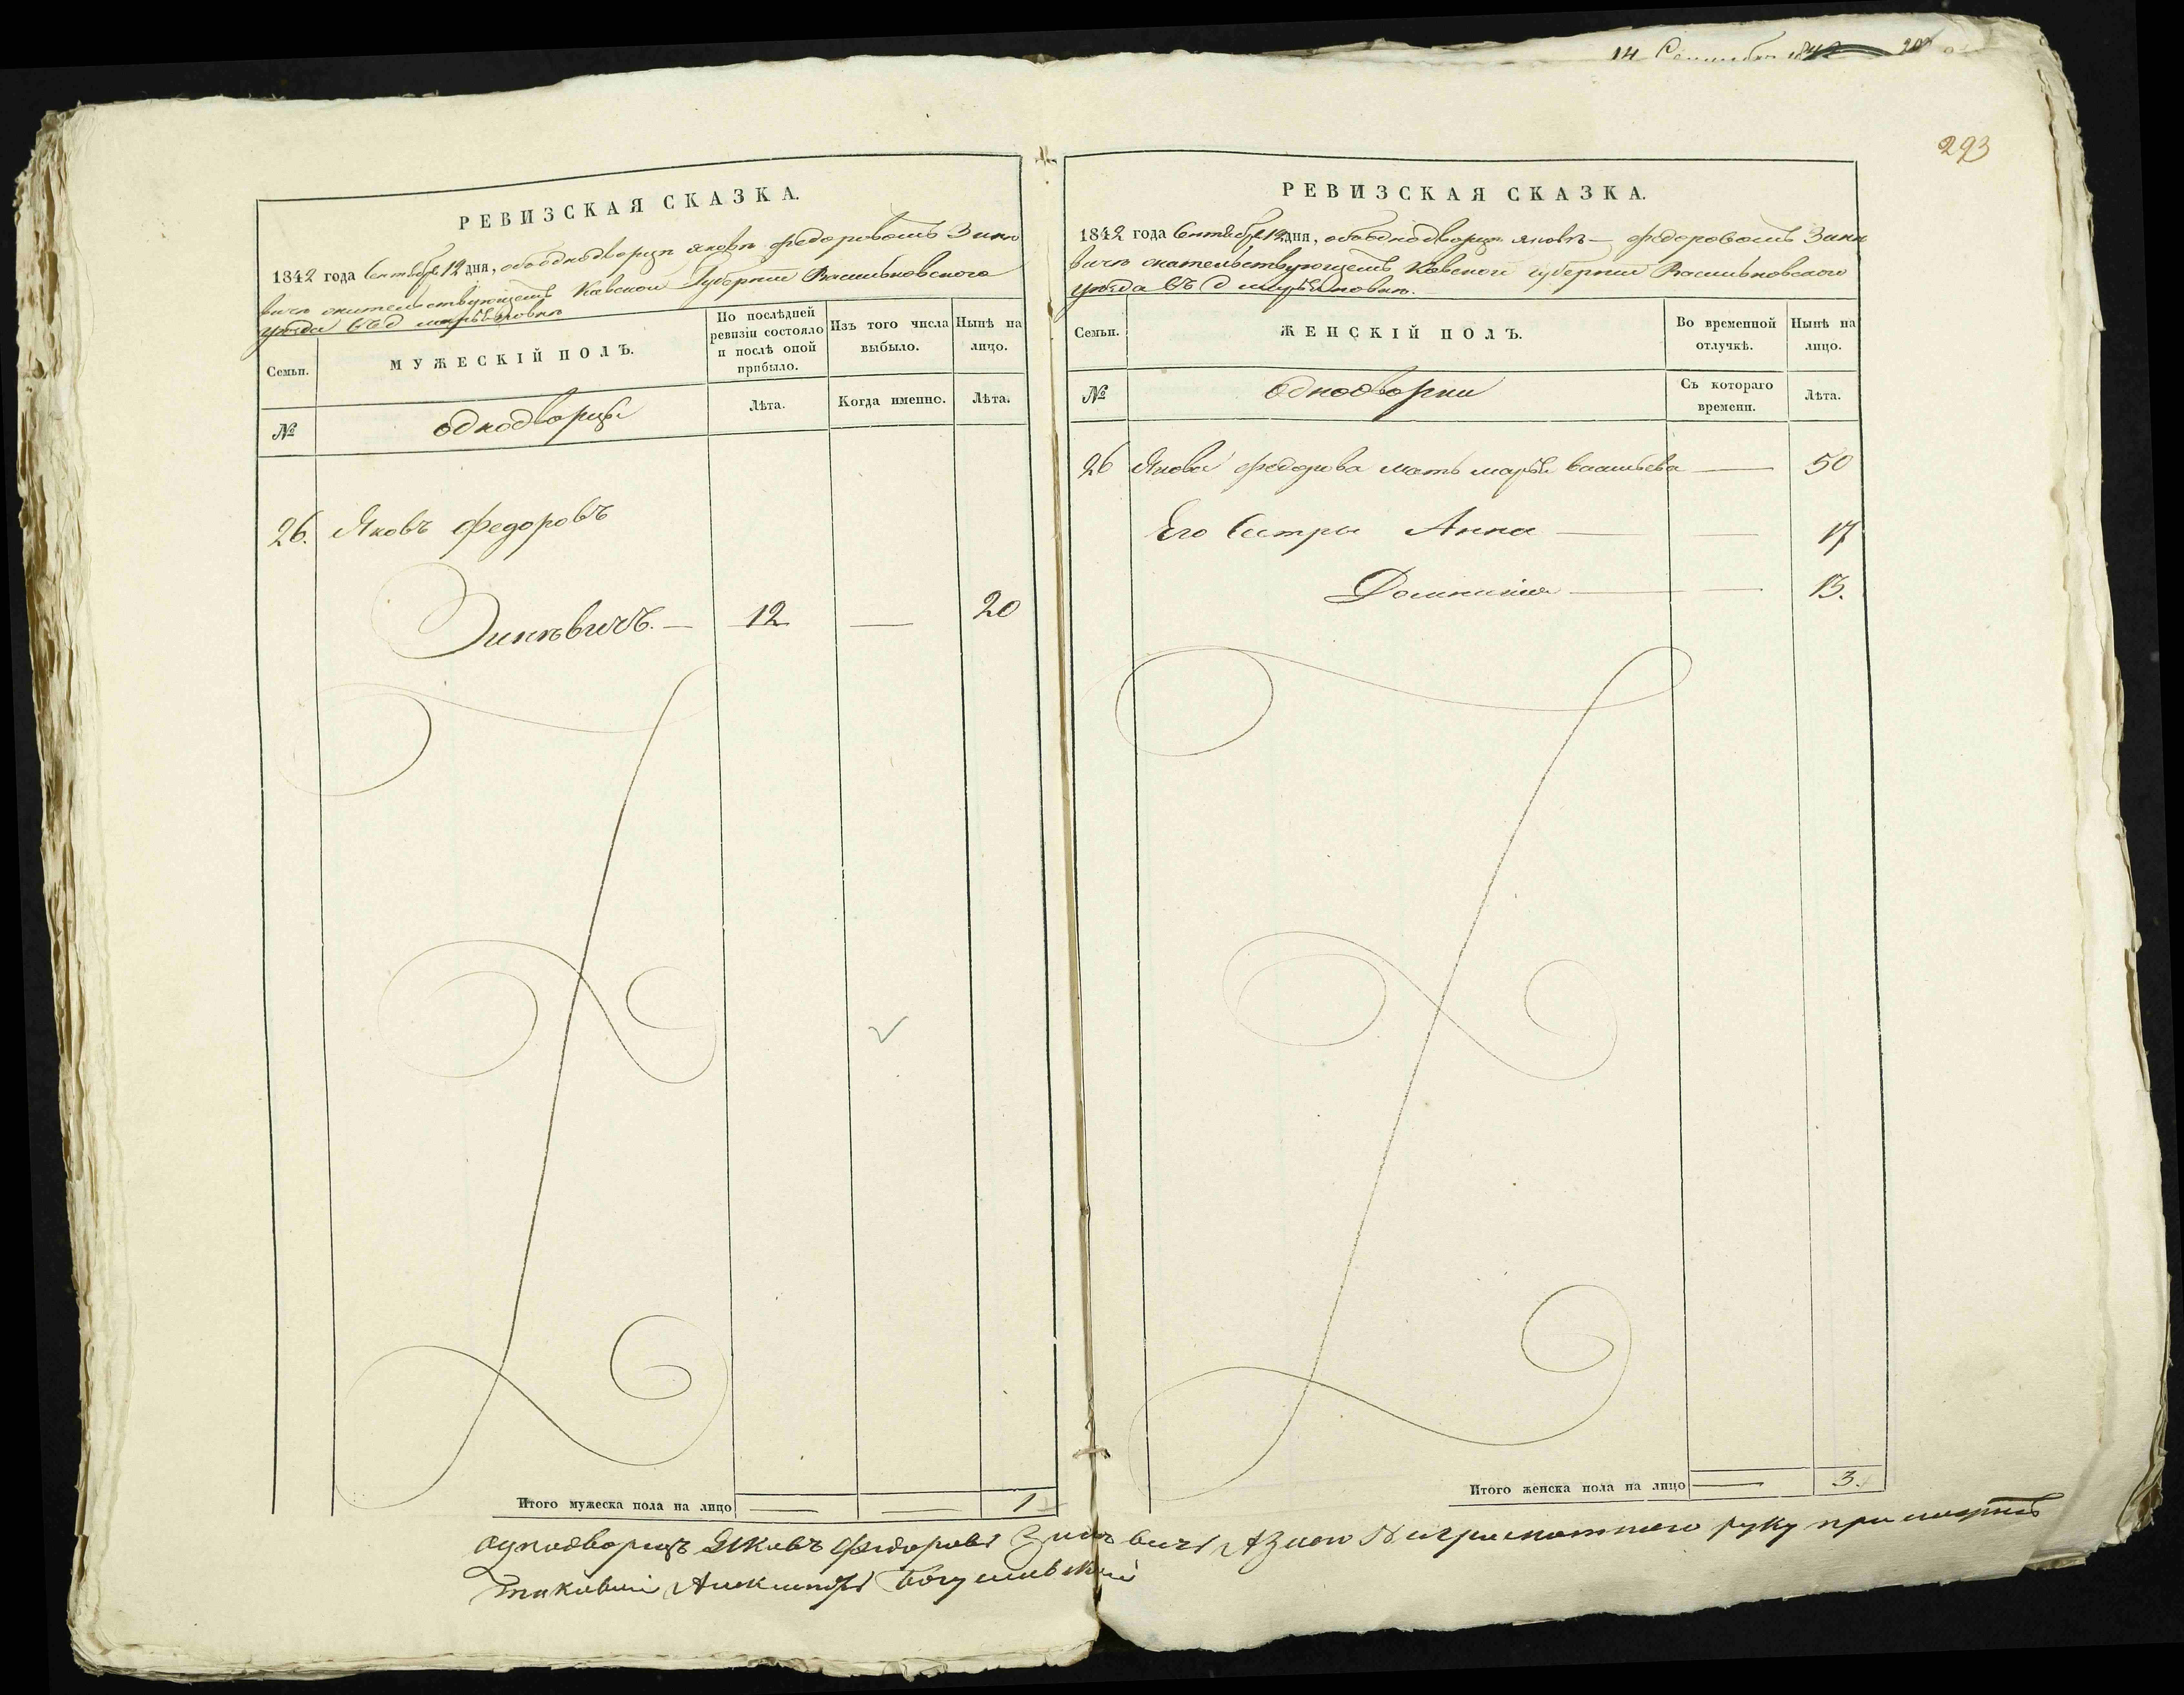 14 Сентября 1842
293
РЕВИЗСКАЯ СКАЗКА.
1842 года Сентября 12 дня, объ однодворцѣ Яковѣ Федоровомъ Зинѣ
вичѣ жительствующемъ Кіевской Губерніи Васильковскаго
уѣзда въ д
Семьи.
МУЖЕСКІЙ ПОЛЪ.
По послѣдней ревизіи состояло и послѣ оной прибыло.
Изъ того числа выбыло.
Нынѣ на лицо.
№
однодворцы
Лѣта.
Когда именно.
Лѣта.
26. Яковъ Федоровъ
Зинѣвичъ. — 12 — 20
Итого мужеска пола на лицо — — 1
РЕВИЗСКАЯ СКАЗКА.
1842 года Сентября 12 дня, объ однодворцѣ Яковѣ — Федоровомъ Зинѣ
вичѣ жительствующемъ Кіевской губерніи Васильковскаго
уѣзда въ д
Семьи.
ЖЕНСКІЙ ПОЛЪ.
Во временной отлучкѣ.
Нынѣ на лицо.
№
однодворки
Съ котораго времени.
Лѣта.
26 Якова Федорова мать марья васильева — 50
Его Сестры Анна — — 17
Домникія — — 13.
Итого женска пола на лицо — 3.
однодворецъ Яковъ Федоровъ Зинѣвичъ а за него неграмотнаго руку приложилъ
Александръ